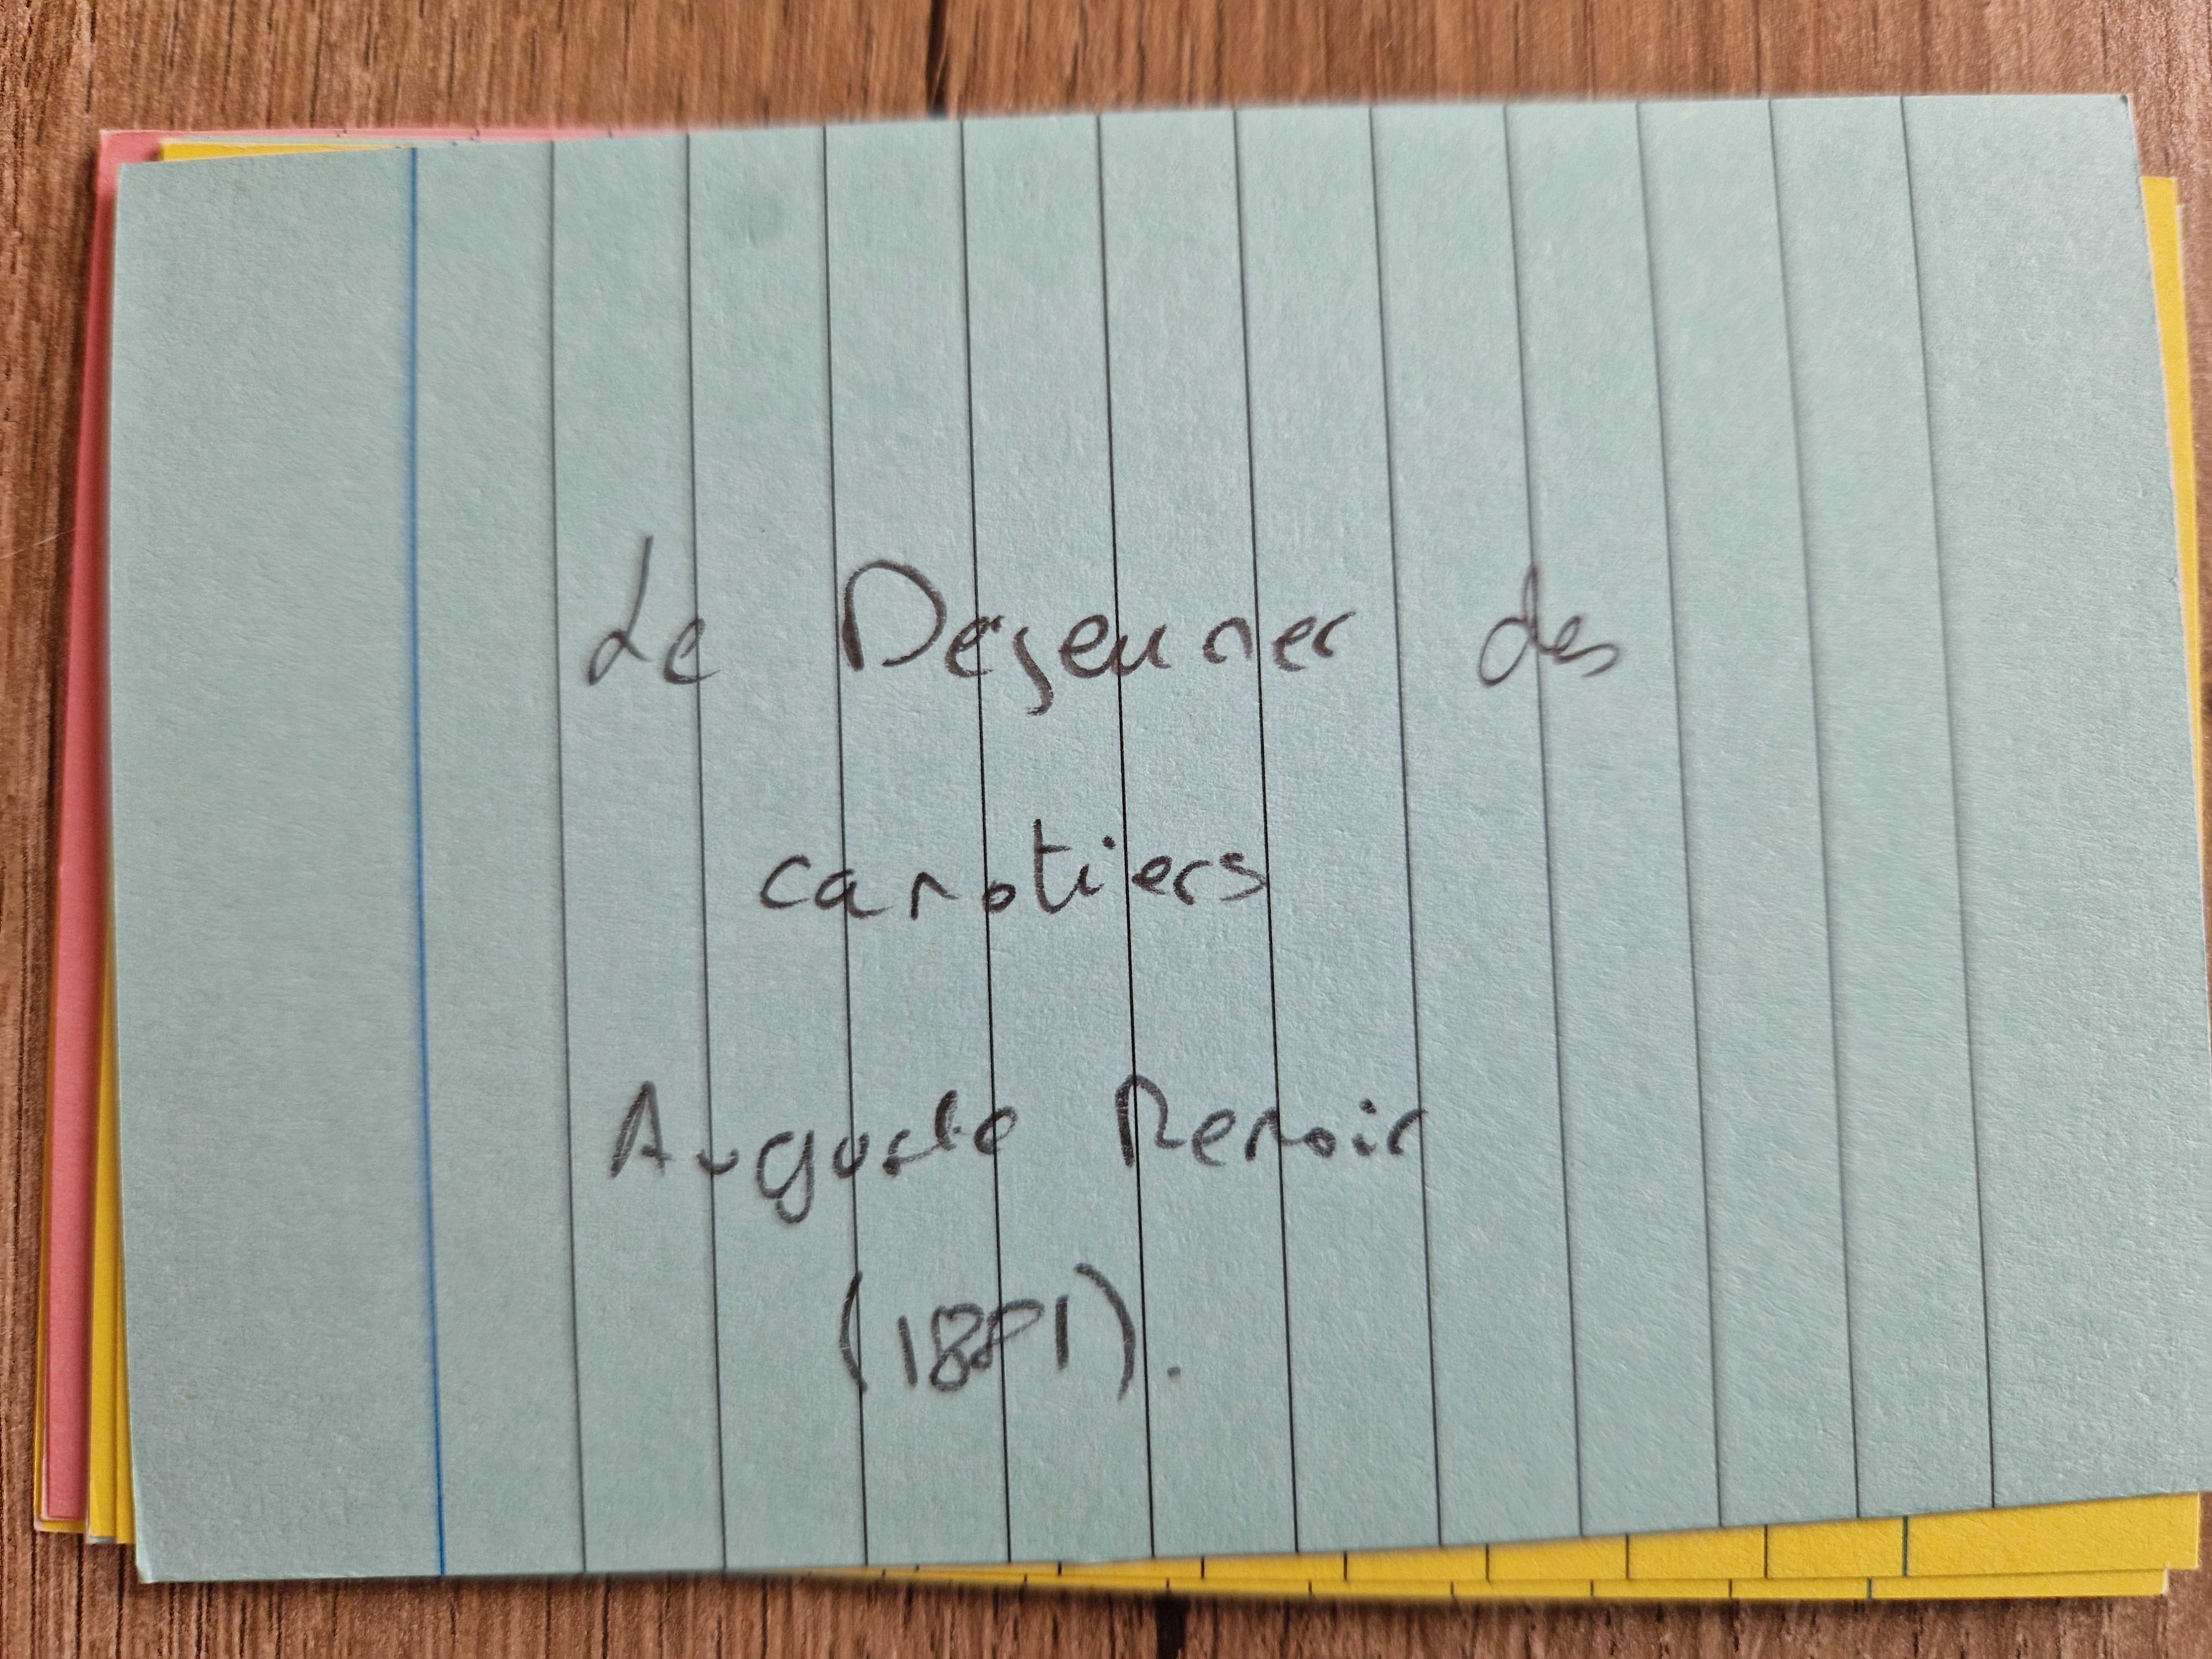 Le Dejeuner des
canotiers
Auguste Renoir
(1881).